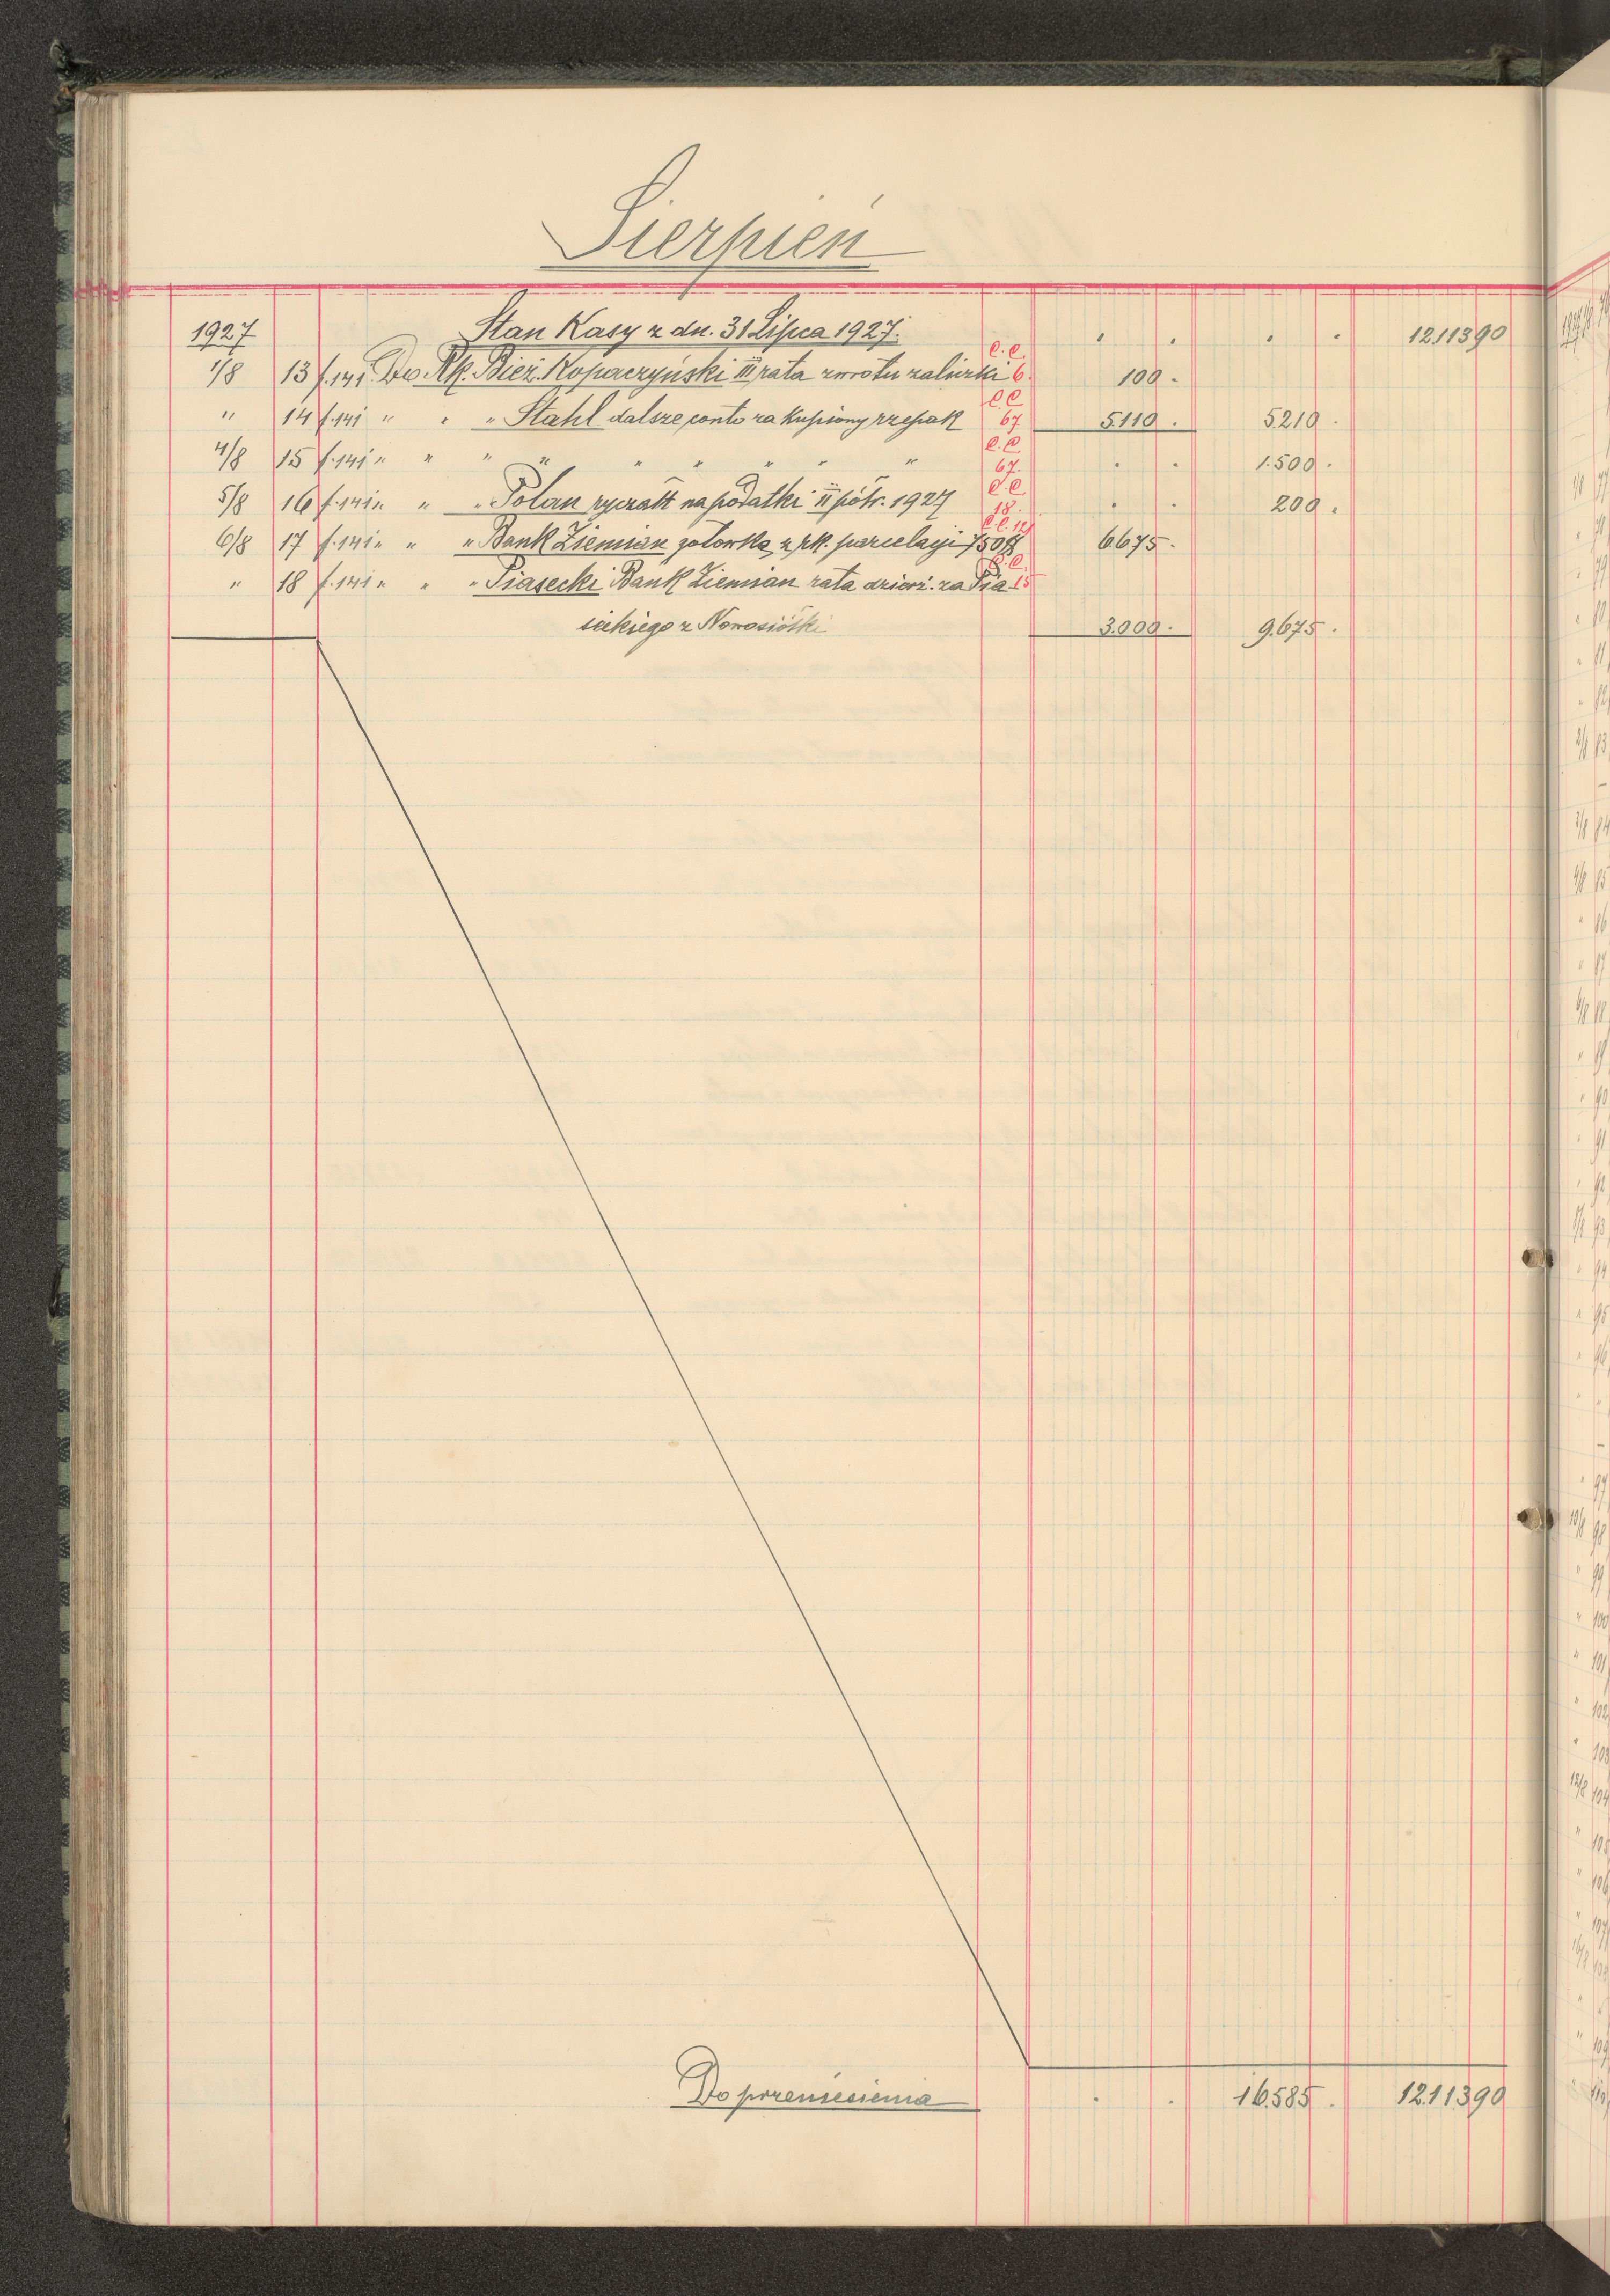 Sierpień
1927 Stan Kasy z dn. 31 Lipca 1927. . . . . 12.113 90
1/8 13 f. 141 Do Rk. Bież. Kopaczyński III rata zwrotu zaliczki C.C. 6. 100 -
" 14 f. 141 " " " Stahl dalsze conto za kupiony rzepak C.C. 67 5.110 . 5.210 .
4/8 15 f. 141 " " " " " " " " " C.C. 67. . . 1.500 .
5/8 16 f. 141 " " " Polan ryczałt na podatki II półr. 1927 C.C. 18. . . 200 .
6/8 17 f. 141 " " " Bank Ziemian gotówka z rk. parcelacji 750 C.C. 12 6.675 .
" 18 f. 141 " " " Piasecki Bank Ziemian rata dzierż. za Pia- C.C. 15
seckiego z Nowosiółki 3.000 . 9.675 .
Do przeniesienia . . 16.585 . 12.113 90